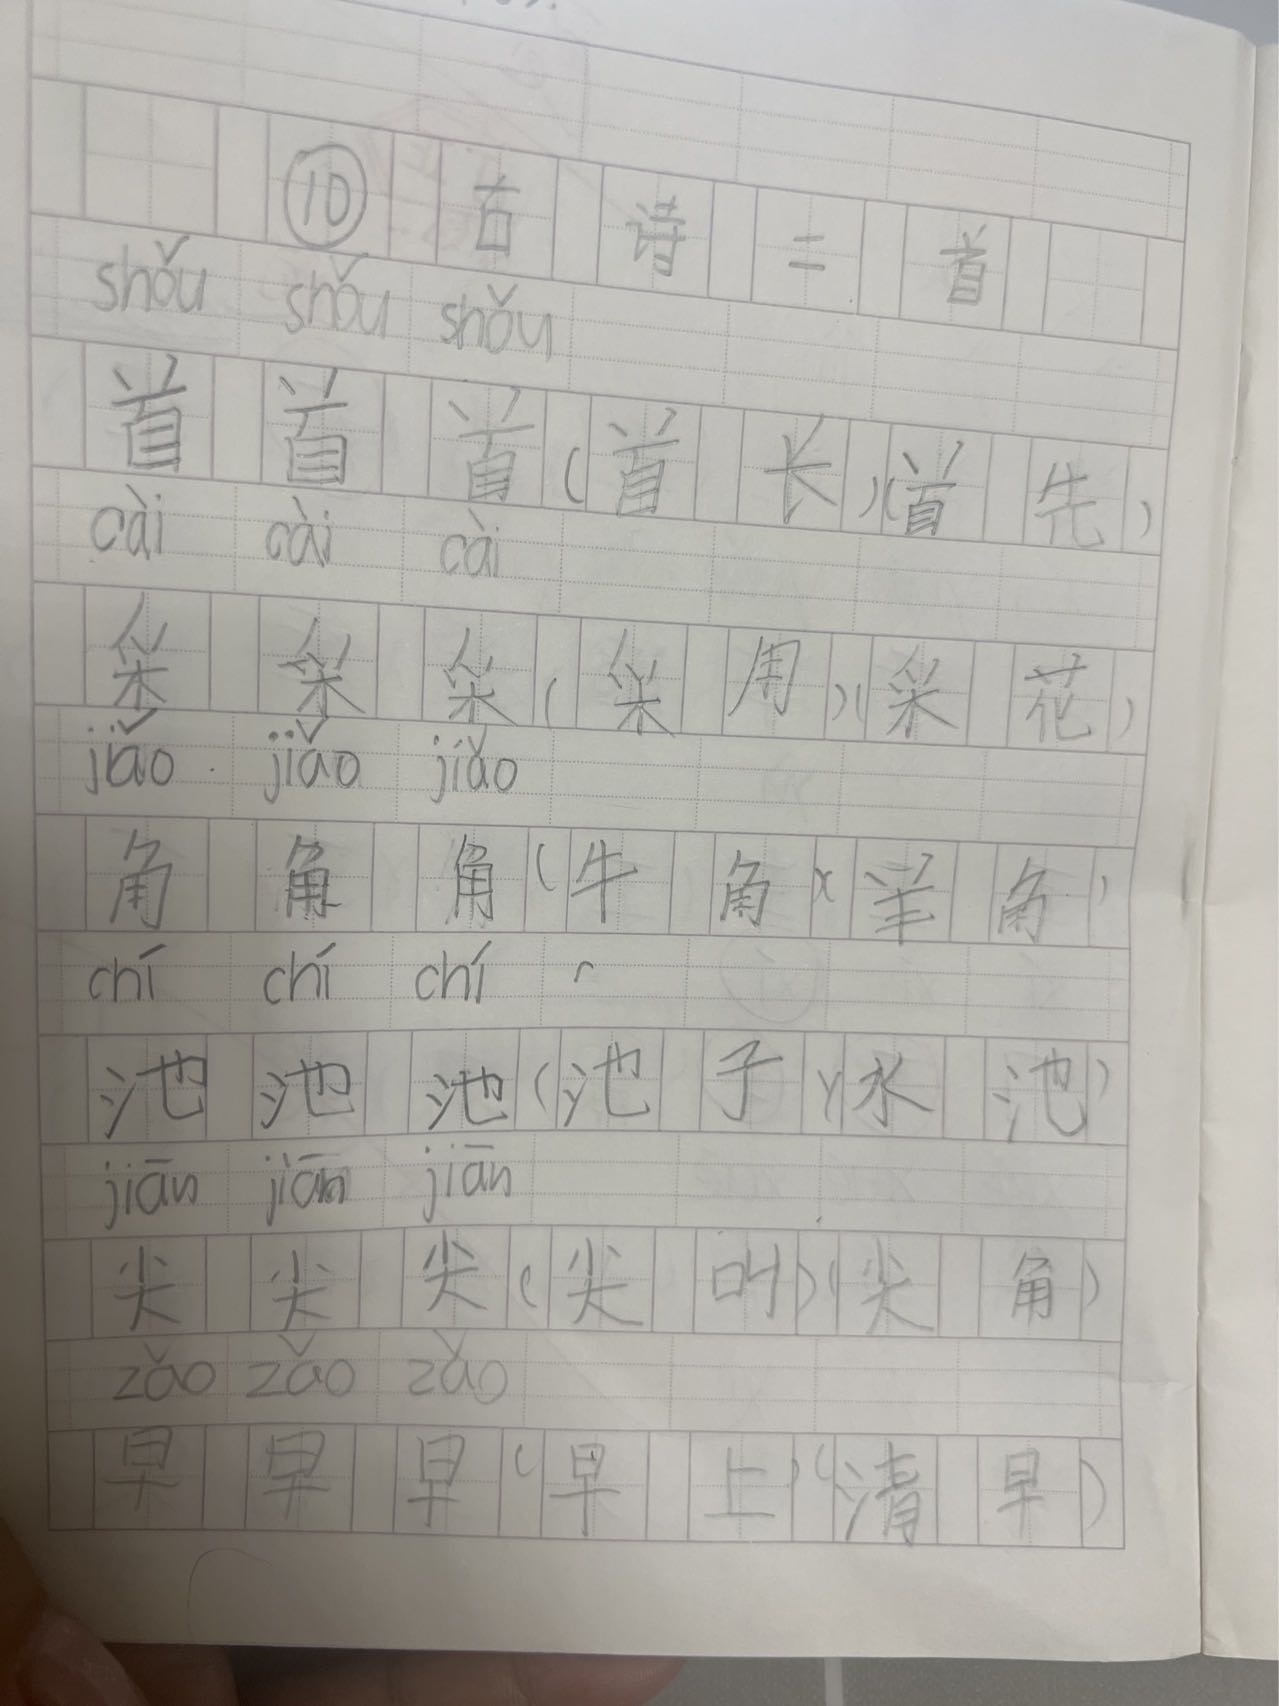 ⑩古诗二首
shǒu shǒu shǒu
首首首(首长)(首先)
cài cài cài
采采采(采用)(采花)
jiǎo jiǎo jiǎo
角角角(牛角)(羊角)
chí chí chí
池池池(池子)(水池)
jiān jiān jiān
尖尖尖(尖叫)(尖角)
zǎo zǎo zǎo
早早早(早上)(清早)